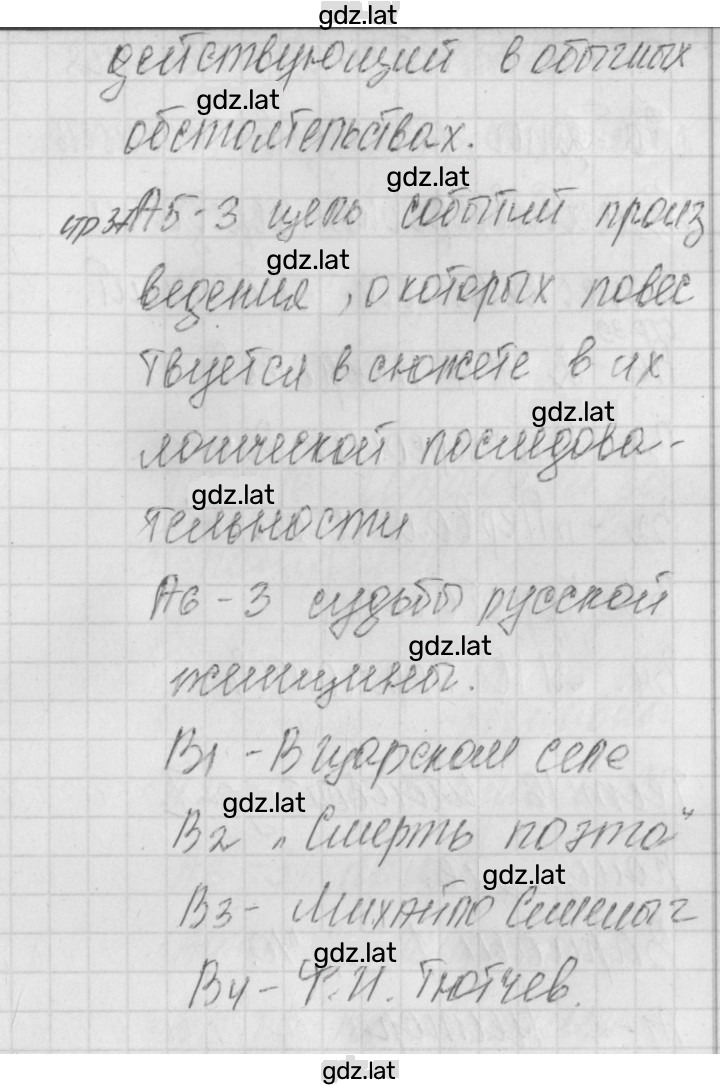 gdz.lat
действующий в обычных
gdz.lat
обстоятельствах.
gdz.lat
стр 37 А5-3 цепь событий произ
gdz.lat
ведения, о которых повес
твуется в сюжете в их
gdz.lat
логической последова-
gdz.lat
тельности
А6-3 судьбы русской
gdz.lat
женщины.
В1 - В царском селе
gdz.lat
В2 „Смерть поэта"
gdz.lat
В3 - Михайло Семеныч
gdz.lat
В4 - Ф.И. Тютчев.
gdz.lat